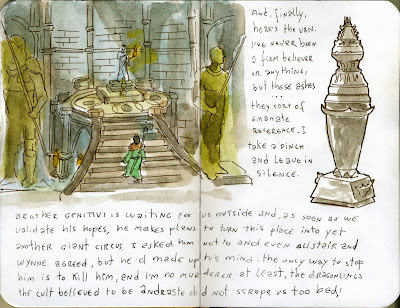 And, finally,
here's the urn.
I've never been
a firm believer
in anything,
but these ashes
...
they sort of
emanate
reverence. I
take a pinch
and leave in
silence.
Brother Genitivi is waiting for us outside and, as soon as we
validate his hopes, he makes plans to turn this place into yet
another giant circus. I asked him not to and even Alistair and
Wynne agreed, but he'd made up his mind: the only way to stop
him is to kill him, and I'm no murderer at least, the dragonlings
the cult believed to be Andraste did not scrape us too bad!